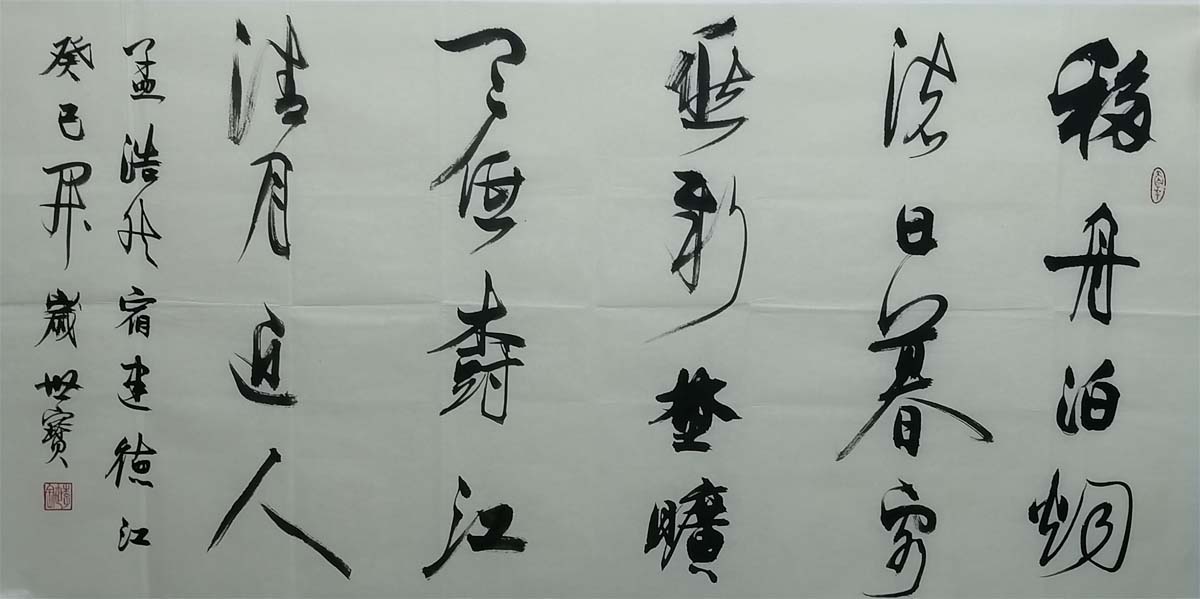 移舟泊烟
渚日暮客
愁新埜曠
天低樹江
清月近人
孟浩然宿建德江
癸巳開歲世寶